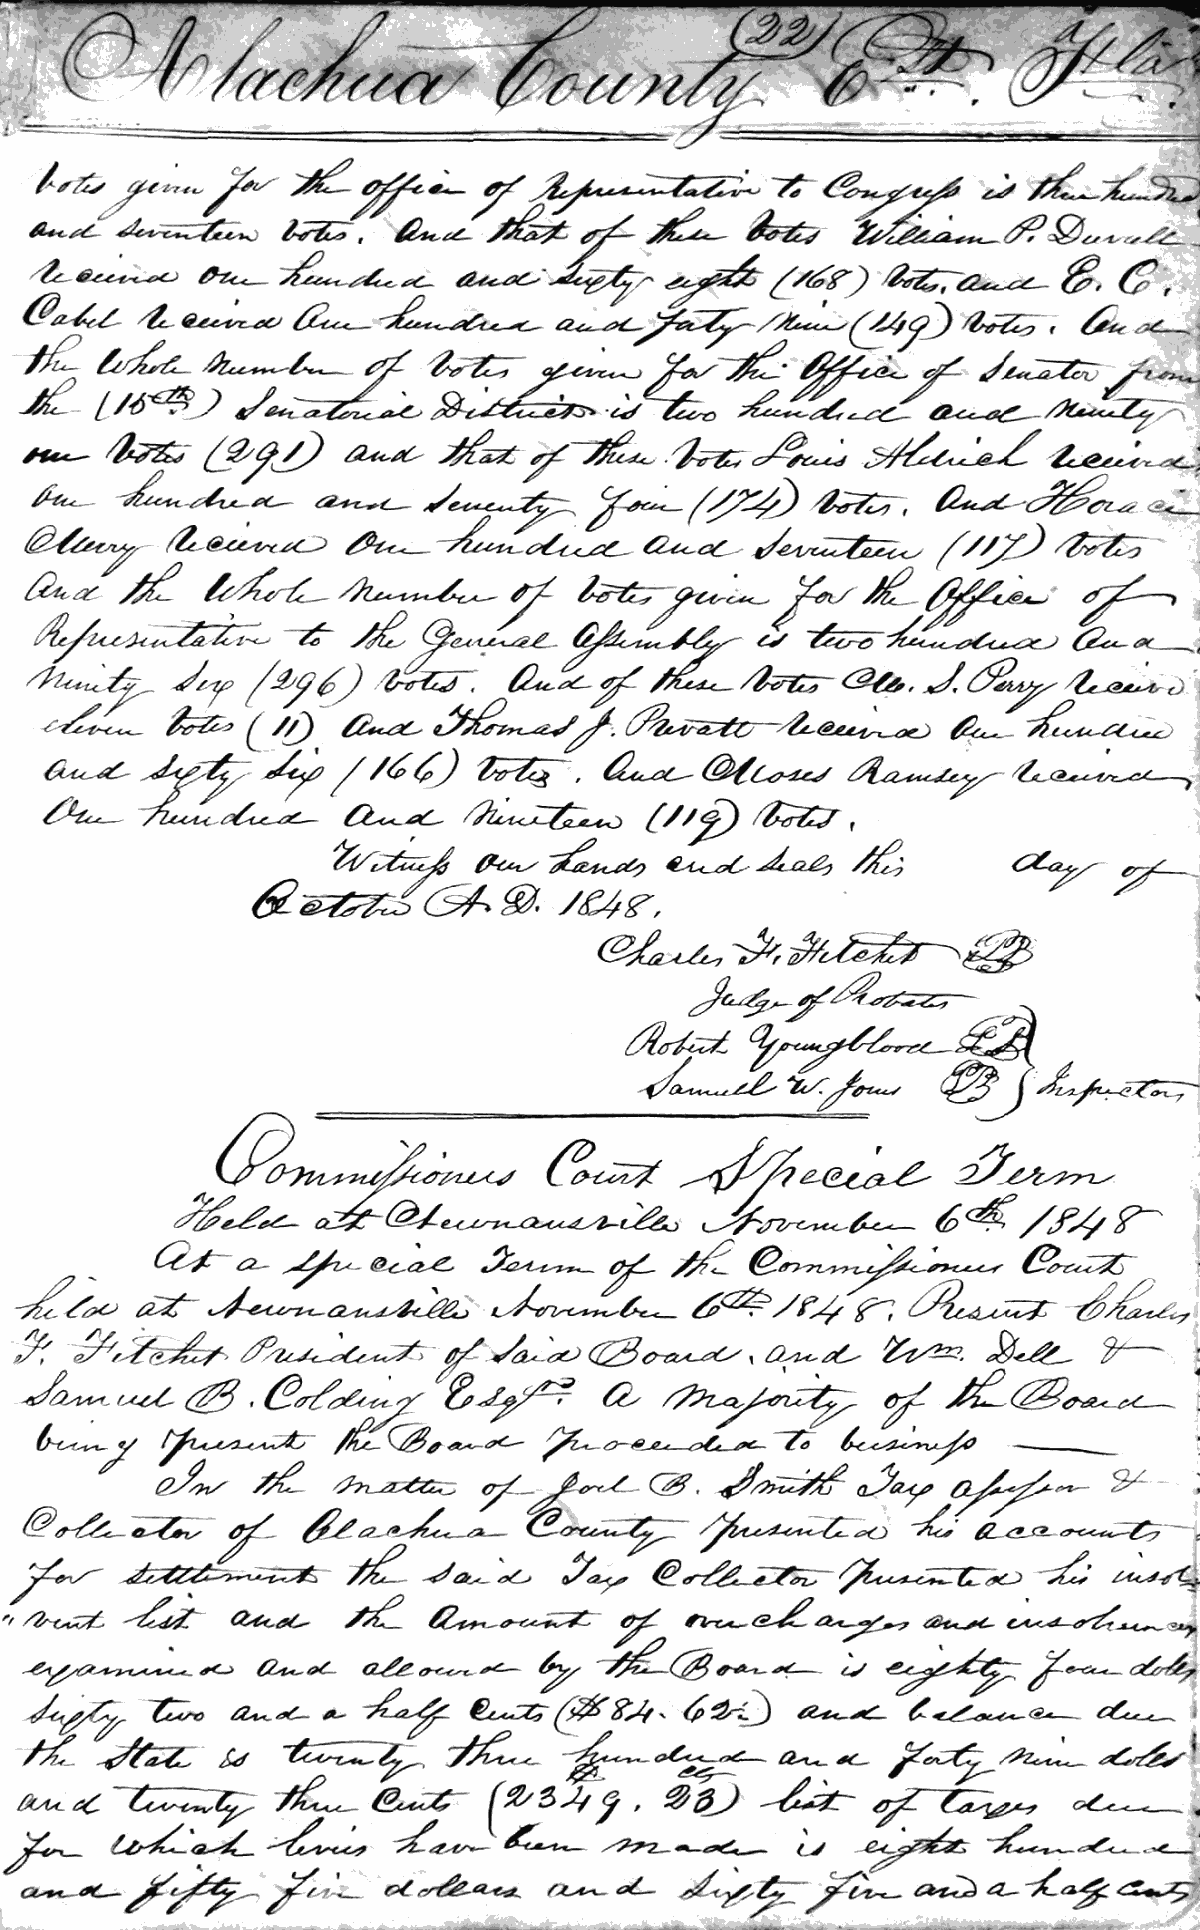 (22)
Alachua County Est. Fla.
votes given for the office of Representative to Congress is three hundred
and seventeen votes. And that of these votes William P. Duvall
received one hundred and sixty eight (168) votes. and E. C.
Cabel received One hundred and forty nine (149) votes. And
the whole number of votes given for the Office of Senator from
the (15th) Senatorial District is two hundred and ninety
one votes (291) and that of these votes Louis Aldrich received
one hundred and seventy four (174) votes. And Horace
Merry received One hundred and seventeen (117) votes
And the whole number of votes given for the Office of
Representative to the General Assembly is two hundred And
Ninety six (296) votes. And of these votes M. S. Perry receive
eleven votes (11) And Thomas J. Prevatt received One hundred
and sixty six (166) votes. And Moses Ramsey received
One hundred and nineteen (119) votes.
Witness our hands and seals this day of
October A. D. 1848.
Charles F. Fitchet LS
Judge of Probates
Robert Youngblood LS
Samuell W. Jones LS } Inspectors
Commissioners Court Special Term
Held at Newnansville November 6th 1848
At a special Term of the Commissioners Court
held at Newnansville November 6th 1848. Present Charles
F. Fitchet President of said Board. and Wm. Dell &
Samuel B. Colding Esqrs. A Majority of the Board
being present the Board proceeded to business
In the matter of Joel B. Smith Tax assessor &
Collector of Alachua County presented his accounts
for settlement the said Tax Collector presented his insol-
"vent list and the Amount of overcharges and insolvencies
examined and allowed by the Board is eighty four dolls
sixty two and a half Cents ($84.62½) and balance due
the State is twenty three hundred and forty nine dolls
and twenty three Cents ($2349. 23cts) list of taxes due
for which levies have been made is eight hundred
and fifty five dollars and sixty five and a half Cents